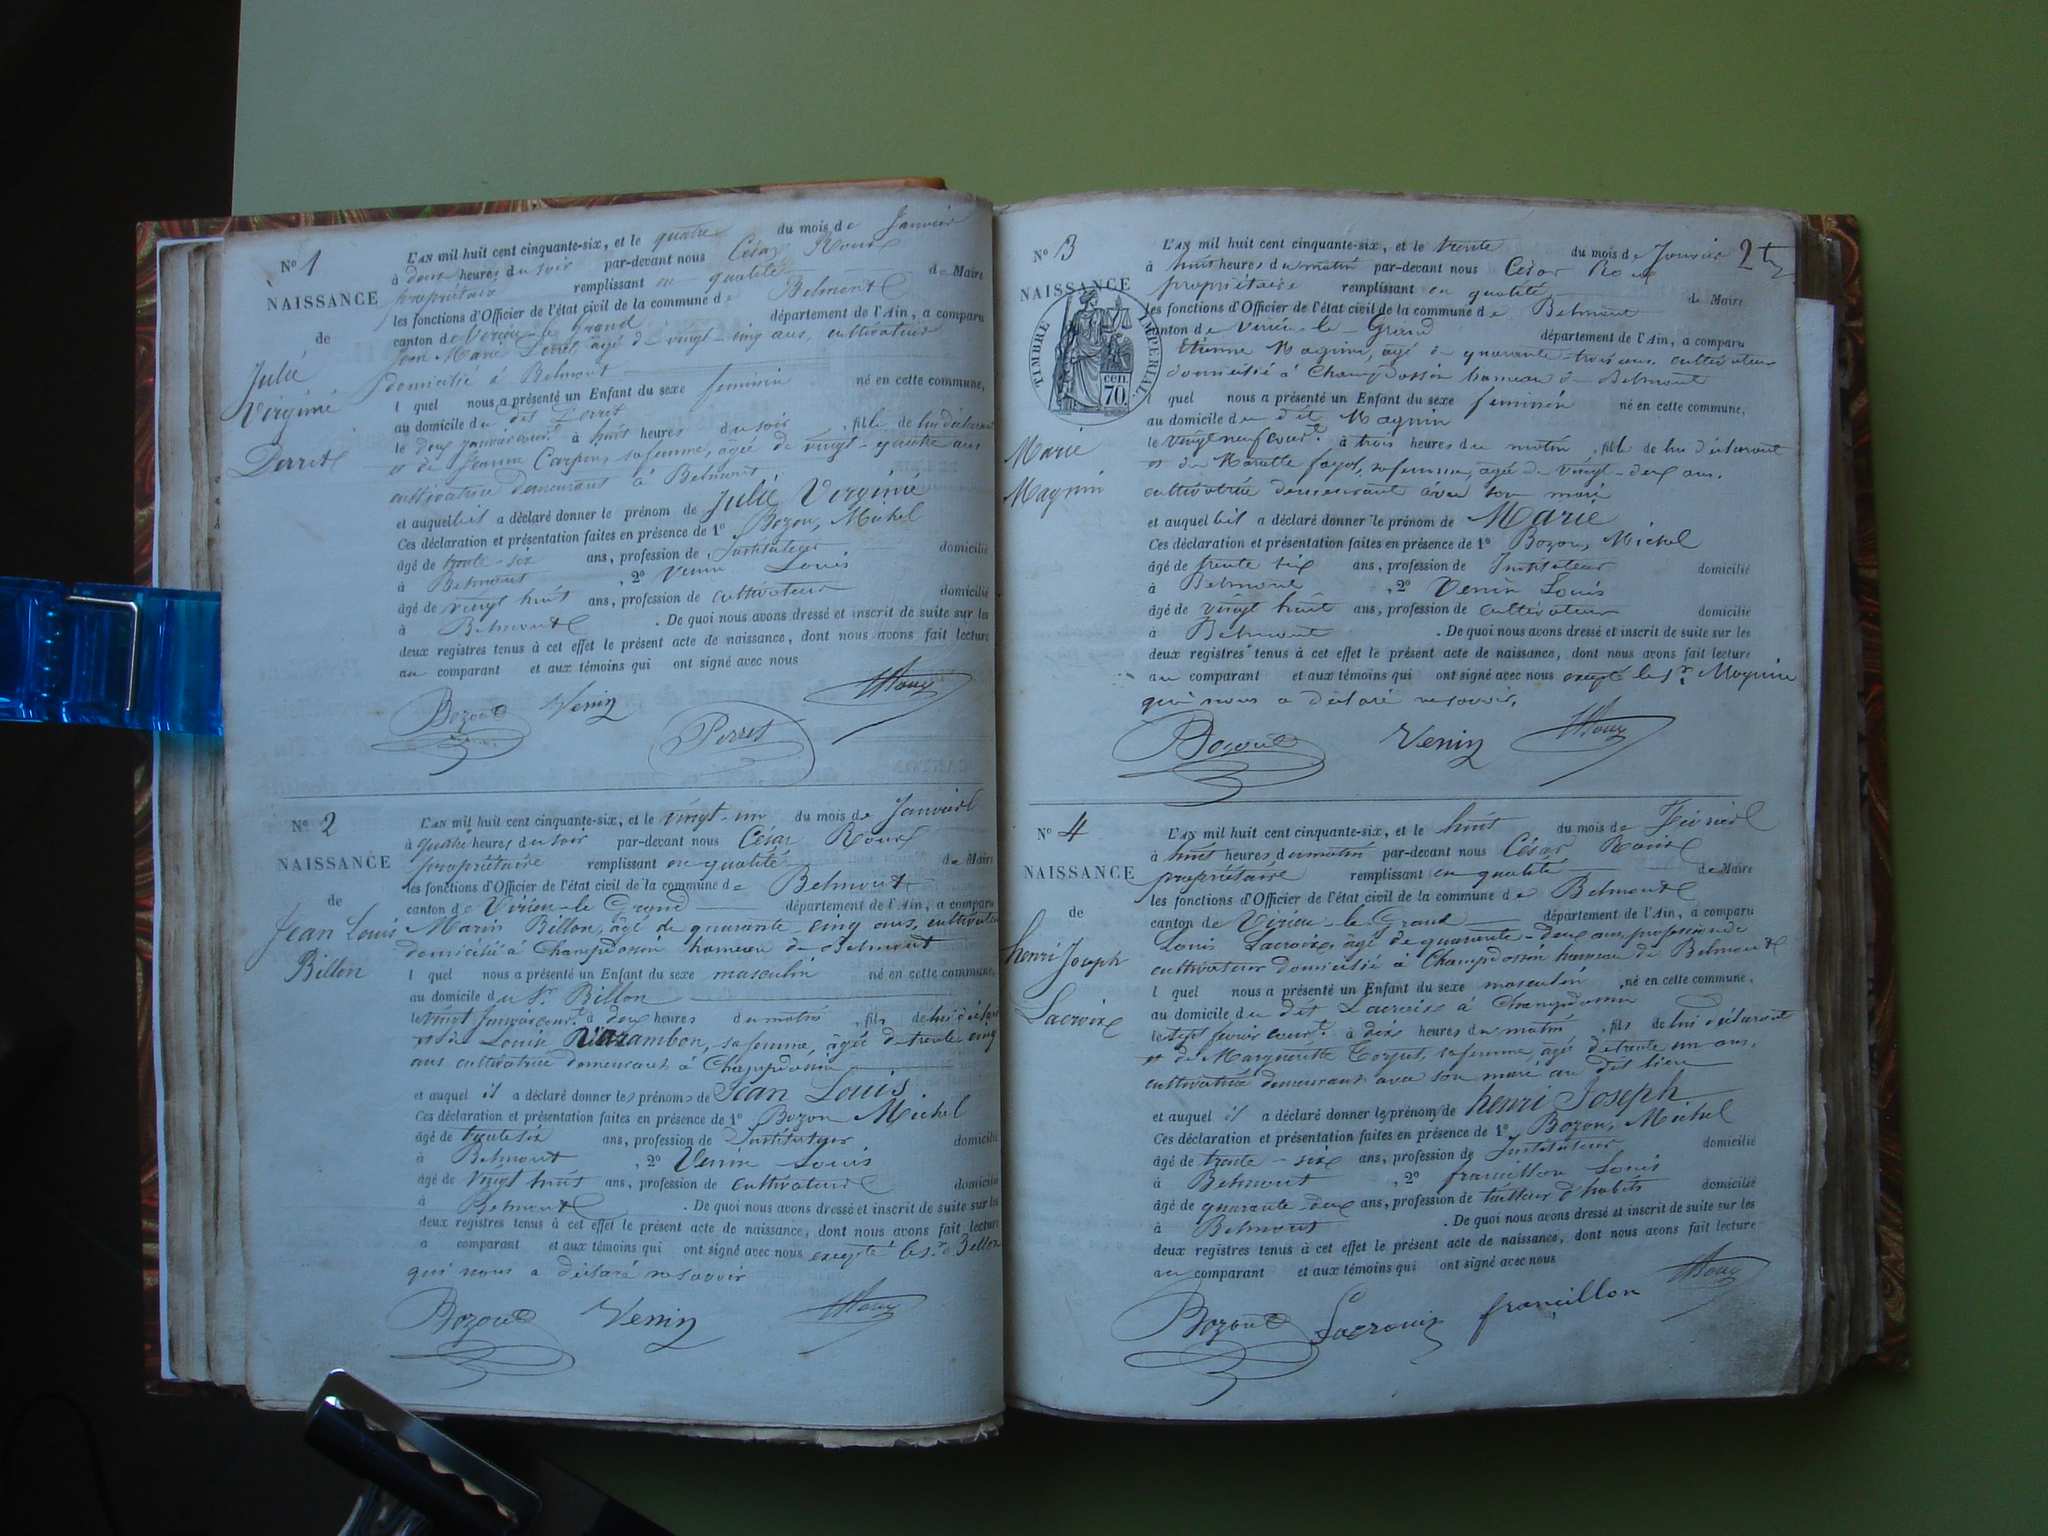 N° 1
NAISSANCE
de
Julie
Virginie
Perret
L'AN mil huit cent cinquante-six, et le quatre du mois de Janvier
à deux heures du soir par-devant nous César Roux
propriétaire remplissant en qualité de Maire
les fonctions d'Officier de l'état civil de la commune de Belmont
canton de Virieu-le-Grand département de l'Ain, a comparu
Jean Marie Perret, âgé de vingt-cinq ans, cultivateur
domicilié à Belmont
l quel nous a présenté un Enfant du sexe feminin né en cette commune,
au domicile du dit Perret
le deux janvier court à huit heures du soir, fille de lui déclarant
et de Jeanne Carpin, sa femme, âgée de vingt-quatre ans
cultivatrice demeurant à Belmont
et auquel il a déclaré donner le prénom de Julie Virginie
Ces déclaration et présentation faites en présence de 1° Bozon, Michel
âgé de trente-six ans, profession de Instituteur domicilié
à Belmont, 2° Venin Louis
âgé de vingt huit ans, profession de cultivateur domicilié
à Belmont. De quoi nous avons dressé et inscrit de suite sur les
deux registres tenus à cet effet le présent acte de naissance, dont nous avons fait lecture
au comparant et aux témoins qui ont signé avec nous
Bozon Venin Perret Roux
N° 2
NAISSANCE
de
Jean Louis
Billon
L'AN mil huit cent cinquante-six, et le vingt-un du mois de Janvier
à quatre heures du soir par-devant nous César Roux
propriétaire remplissant en qualité de Maire
les fonctions d'Officier de l'état civil de la commune de Belmont
canton de Virieu-le-Grand département de l'Ain, a comparu
Marin Billon, âgé de quarante-cinq ans, cultivateur
domicilié à Champdossin hameau de Belmont
l quel nous a présenté un Enfant du sexe masculin né en cette commune,
au domicile du Sr Billon
le vingt Janvier court à deux heures du matin, fils de lui déclarant
et de Louise sa femme, âgée de trente cinq
ans cultivatrice demeurant à Champdossin
et auquel il a déclaré donner les prénoms de Jean Louis
Ces déclaration et présentation faites en présence de 1° Bozon Michel
âgé de trente six ans, profession de Instituteur domicilié
à Belmont, 2° Venin Louis
âgé de vingt huit ans, profession de cultivateur domicilié
à Belmont. De quoi nous avons dressé et inscrit de suite sur les
deux registres tenus à cet effet le présent acte de naissance, dont nous avons fait lecture
a comparant et aux témoins qui ont signé avec nous excepté le sr Billon
qui nous a déclaré ne savoir
Bozon Venin Roux
2
N° 3
NAISSANCE
TIMBRE IMPERIAL.
cen.
70.
Marie
Magnin
L'AN mil huit cent cinquante-six, et le trente du mois de Janvier
à huit heures du matin par-devant nous César Roux
propriétaire remplissant en qualité de Maire
les fonctions d'Officier de l'état civil de la commune de Belmont
canton de Virieu-le-Grand département de l'Ain, a comparu
Etienne Magnin, âgé de quarante-trois ans, cultivateur
domicilié à Champdossin hameau de Belmont
l quel nous a présenté un Enfant du sexe feminin né en cette commune,
au domicile du dit Magnin
le vingt neuf court à trois heures du matin, fille de lui déclarant
et de sa femme, âgée de vingt-deux ans.
cultivatrice demeurant avec son mari
et auquel il a déclaré donner le prénom de Marie
Ces déclaration et présentation faites en présence de 1° Bozon, Michel
âgé de trente six ans, profession de Instituteur domicilié
à Belmont, 2° Venin Louis
âgé de vingt huit ans, profession de cultivateur domicilié
à Belmont. De quoi nous avons dressé et inscrit de suite sur les
deux registres tenus à cet effet le présent acte de naissance, dont nous avons fait lecture
au comparant et aux témoins qui ont signé avec nous excepté le sr. Magnin
qui nous a déclaré ne savoir.
Bozon Venin Roux
N° 4
NAISSANCE
de
henri Joseph
Lacroix
L'AN mil huit cent cinquante-six, et le huit du mois de Février
à huit heures du matin par-devant nous César Roux
propriétaire remplissant en qualité de Maire
les fonctions d'Officier de l'état civil de la commune de Belmont
canton de Virieu-le-Grand département de l'Ain, a comparu
Louis Lacroix, âgé de quarante-deux ans, profession de
cultivateur domicilié à Champdossin hameau de Belmont
l quel nous a présenté un Enfant du sexe masculin, né en cette commune,
au domicile du dit Lacroix à Champdossin
le sept février court à dix heures du matin, fils de lui déclarant
et de Marguerite sa femme, âgée de trente un ans,
cultivatrice demeurant avec son mari au dit lieu
et auquel il a déclaré donner les prénom de henri Joseph
Ces déclaration et présentation faites en présence de 1° Bozon, Michel
âgé de trente-six ans, profession de Instituteur domicilié
à Belmont, 2° francillon Louis
âgé de quarante deux ans, profession de tailleur d'habits domicilié
à Belmont. De quoi nous avons dressé et inscrit de suite sur les
deux registres tenus à cet effet le présent acte de naissance, dont nous avons fait lecture
au comparant et aux témoins qui ont signé avec nous
Bozon Lacroix francillon Roux